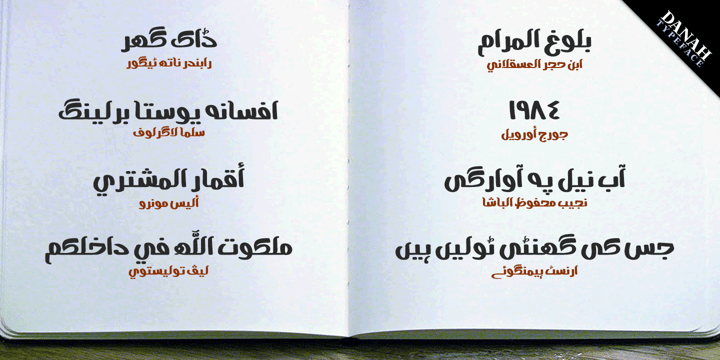 بلوغ المرام
ابن حجر العسقلاني
١٩٨٤
جورج أورويل
آب نیل په آوارگی
نجيب محفوظ الباشا
جس کی گھنٹی ٹولیں ہیں
ارنسٹ ہیمنگوئے
ڈاک گھر
رابندر ناتھ ٹیگور
افسانه یوستا برلینگ
سلما لاگرلوف
أقمار المشتري
أليس مونرو
ملكوت الله في داخلكم
ليڤ تولیستوي
DANAH
TYPEFACE